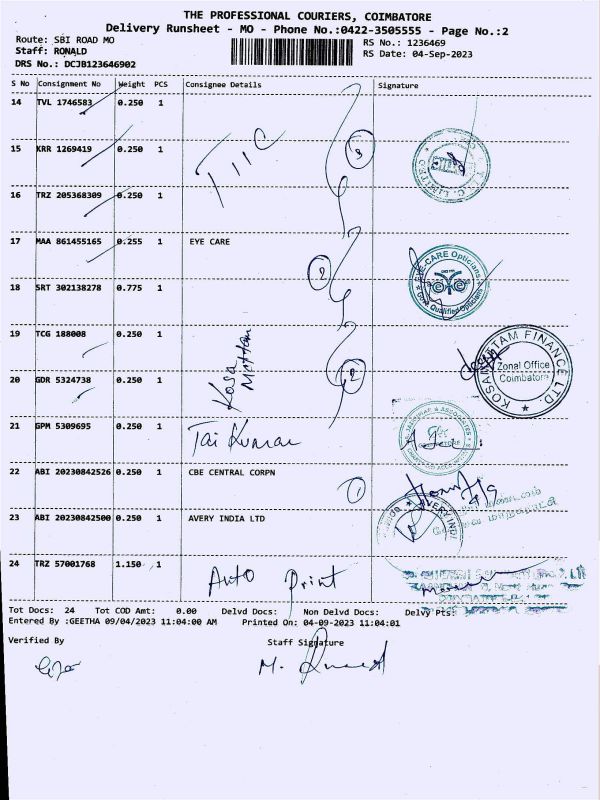 THE PROFESSIONAL COURIERS, COIMBATORE
Delivery Runsheet - MO - Phone No.:0422-3505555 - Page No.:2
Route: SBI ROAD MO RS No.: 1236469
Staff: RONALD RS Date: 04-Sep-2023
DRS No.: DCJB123646902
S No Consignment No Weight PCS Consignee Details Signature
14 TVL 1746583 0.250 1
15 KRR 1269419 0.250 1 TIIC 3
16 TRZ 205368309 0.250 1
17 MAA 861455165 0.255 1 EYE CARE
EYE-CARE Opticians
Qualified Opticians
18 SRT 302138278 0.775 1 2
19 TCG 188008 0.250 1
Kosa Mattam
KOSAMATTAM FINANCE LTD.
Zonal Office
Coimbatore
20 GDR 5324738 0.250 1 2
21 GPM 5309695 0.250 1 Jai Kumar
22 ABI 20230842526 0.250 1 CBE CENTRAL CORPN 1
4/9
23 ABI 20230842500 0.250 1 AVERY INDIA LTD
AVERY INDI
24 TRZ 57001768 1.150 1 Auto Print
Tot Docs: 24 Tot COD Amt: 0.00 Delvd Docs: Non Delvd Docs: Delvy Pts:
Entered By :GEETHA 09/04/2023 11:04:00 AM Printed On: 04-09-2023 11:04:01
Verified By Staff Signature